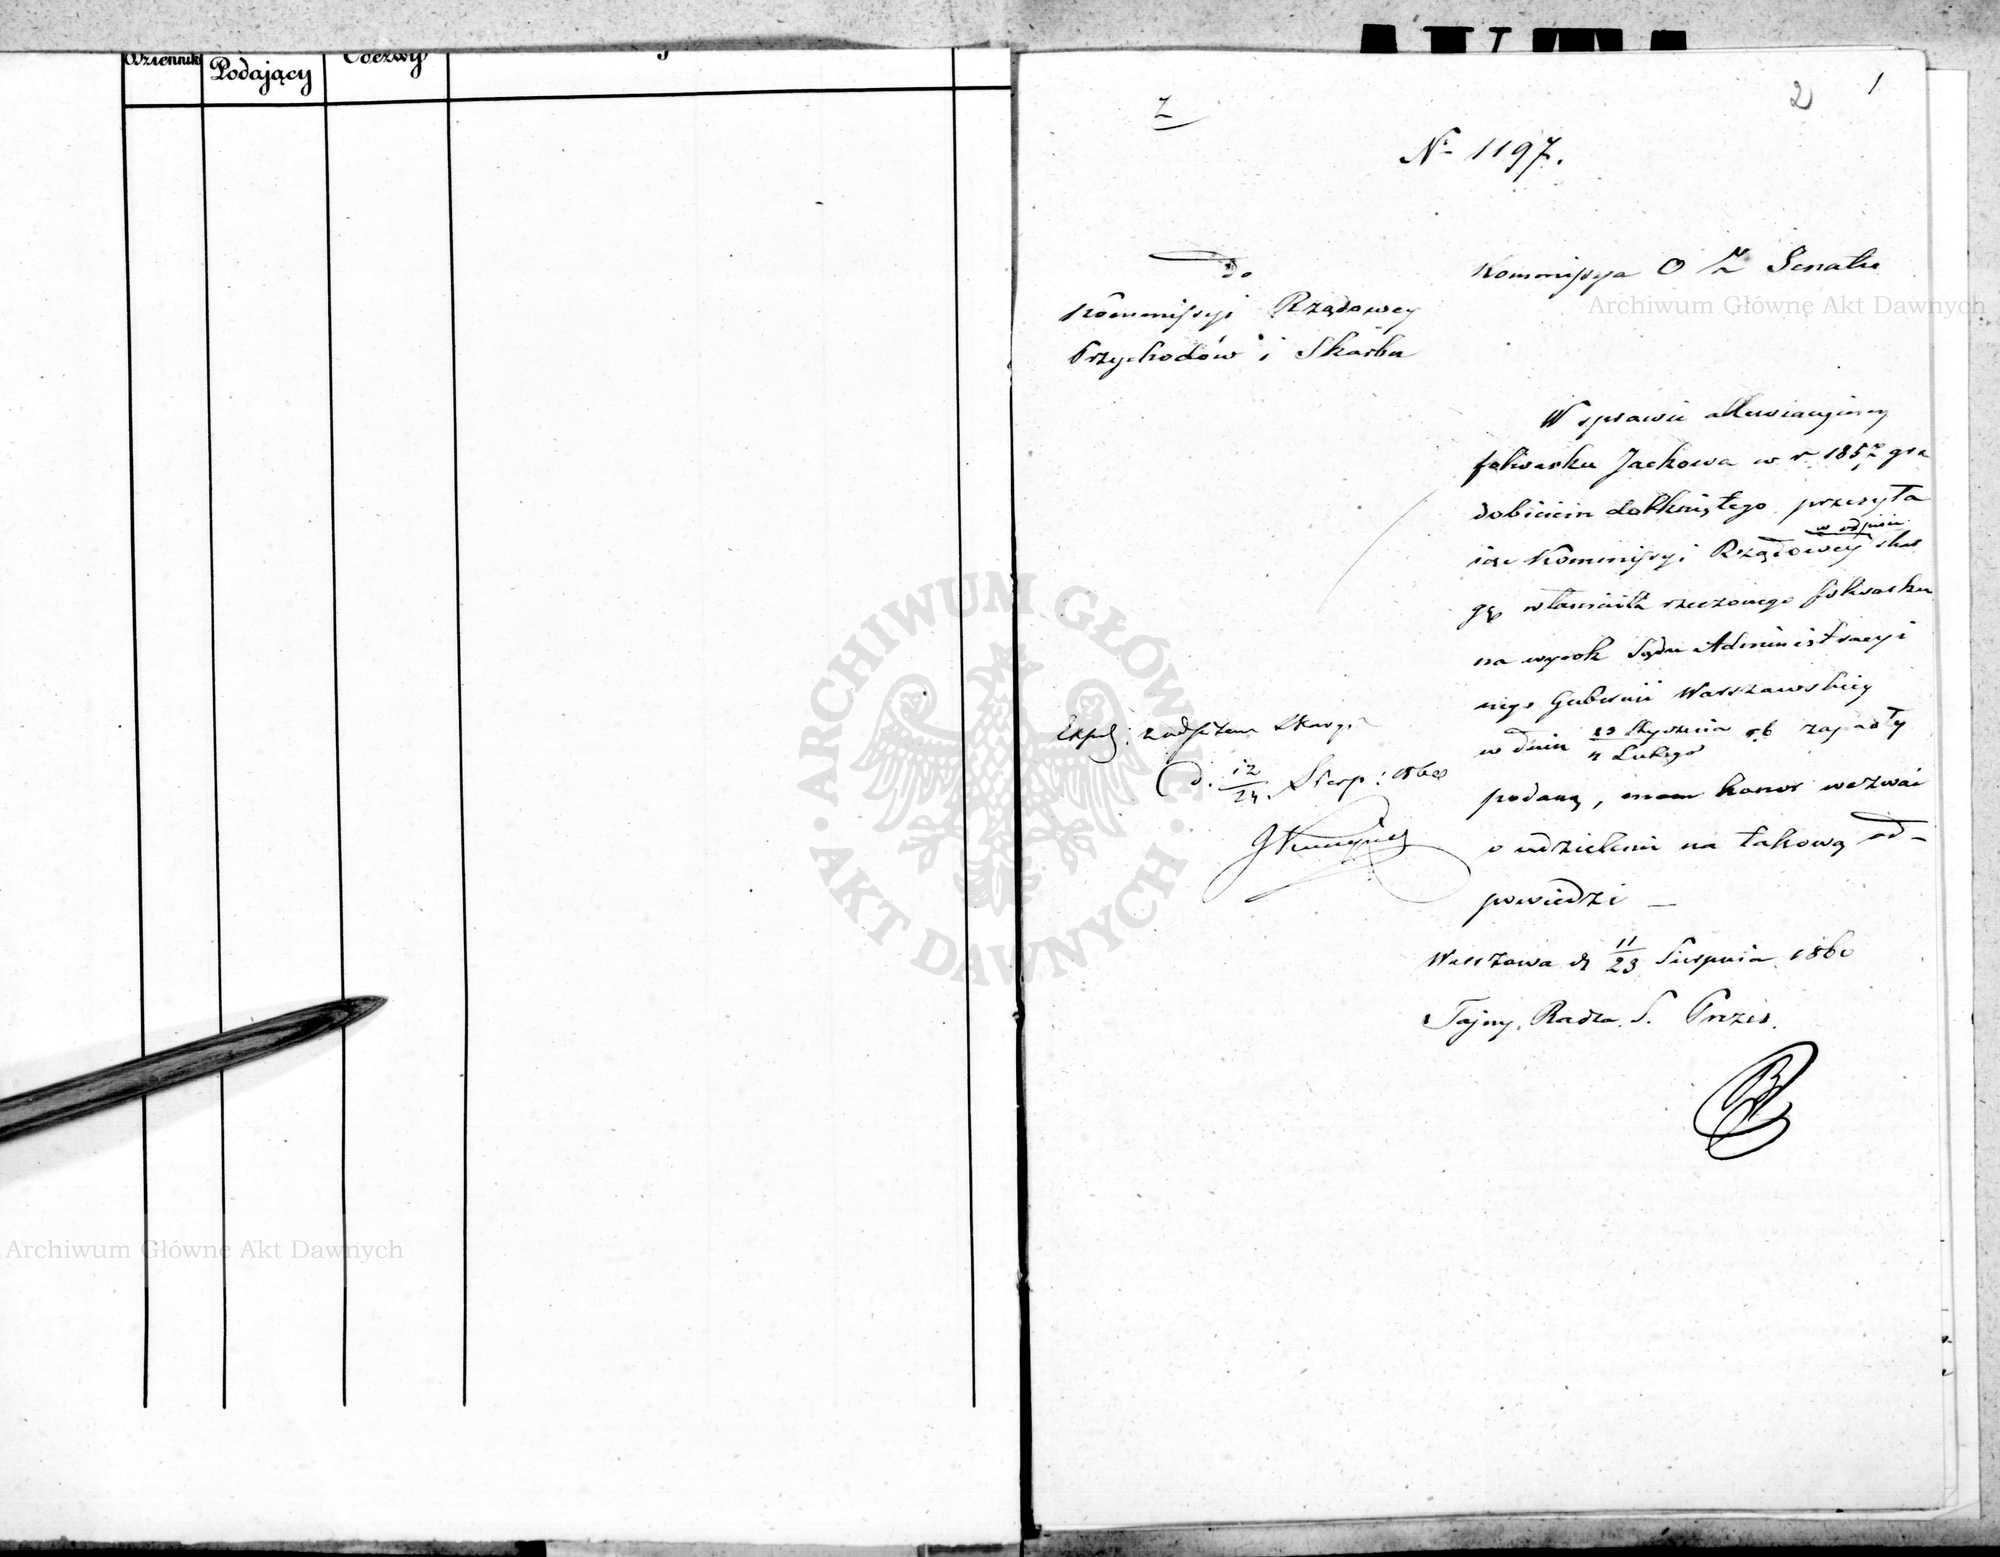 Dziennik
Podający
Odezwy
2 1
Z
Nr 1197.
Do
Kommissyi Rządowey
Przychodów i Skarbu
Kommissya O Z Senatu
Archiwum Główne Akt Dawnych
W sprawie allewiacyjney
folwarku Jackowa w r 1857 gra
dobiciem dotkniętego, przesyła
iąc Kommissyi Rządowey w odpisie skar
gę właściciela rzeczonego folwarku
na wyrok Sądu Administracyi
nego Gubernii Warszawskiey
w dniu 23 Stycznia / 4 Lutego r b zapadły
podaną, mam honor wezwać
o udzielenie na takową od-
powiedzi —
Warszawa d 11/23 Sierpnia 1860
Tajny Radca S. Prezes.
Exped: z odpisem Skargi
d. 12/24. Sierp: 1860
ARCHIWUM GŁÓWNE
AKT DAWNYCH
Archiwum Główne Akt Dawnych